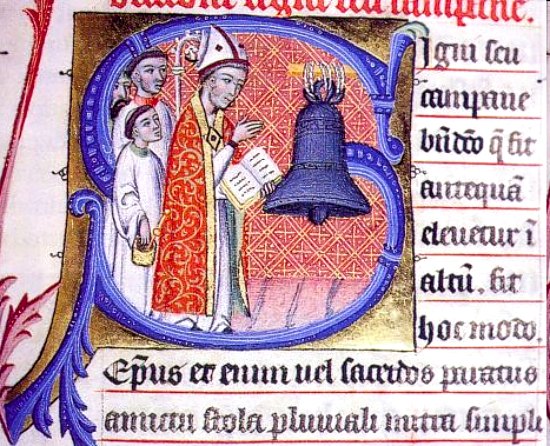 signi campane.
Signi seu
campane
bñdco q̃ fit
antequã
eleuetur ĩ
altũ. fit
hoc modo.
Ep̃us et enim uel sacerdos paratus
amictu stola pluuiali mitra simpli